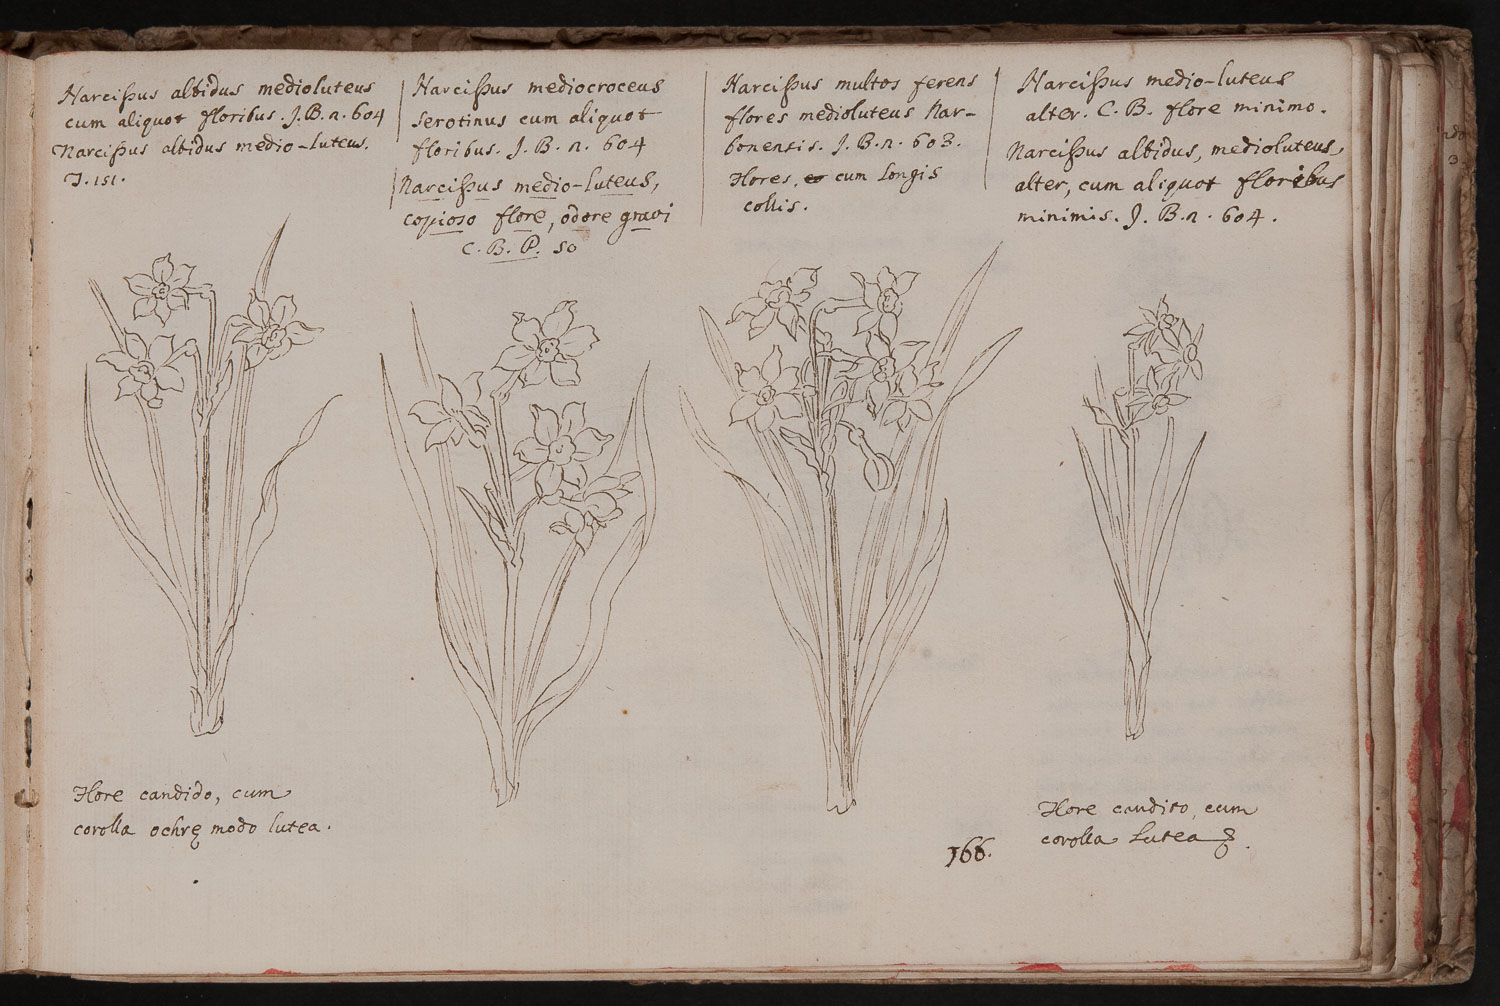 Narcißus albidus medioluteus
cum aliquot floribus. J. B. n. 604
Narcißus albidus medio-luteus.
J. 151.
Narcißus mediocroceus
serotinus cum aliquot
floribus. J. B. n. 604
Narcißus medio-luteus,
copioso flore, odore gravi
C. B. P. 50
Narcißus multos ferens
flores medioluteus Nar-
bonensis. J. B. n. 603.
Flores, cum longis
collis.
Narcißus medio-luteus
alter. C. B. flore minimo.
Narcißus albidus, medioluteus,
alter, cum aliquot floribus
minimis. J. B. n. 604.
Flore candido, cum
corolla ochrę modo lutea.
Flore candito, cum
corolla Lutea
166.